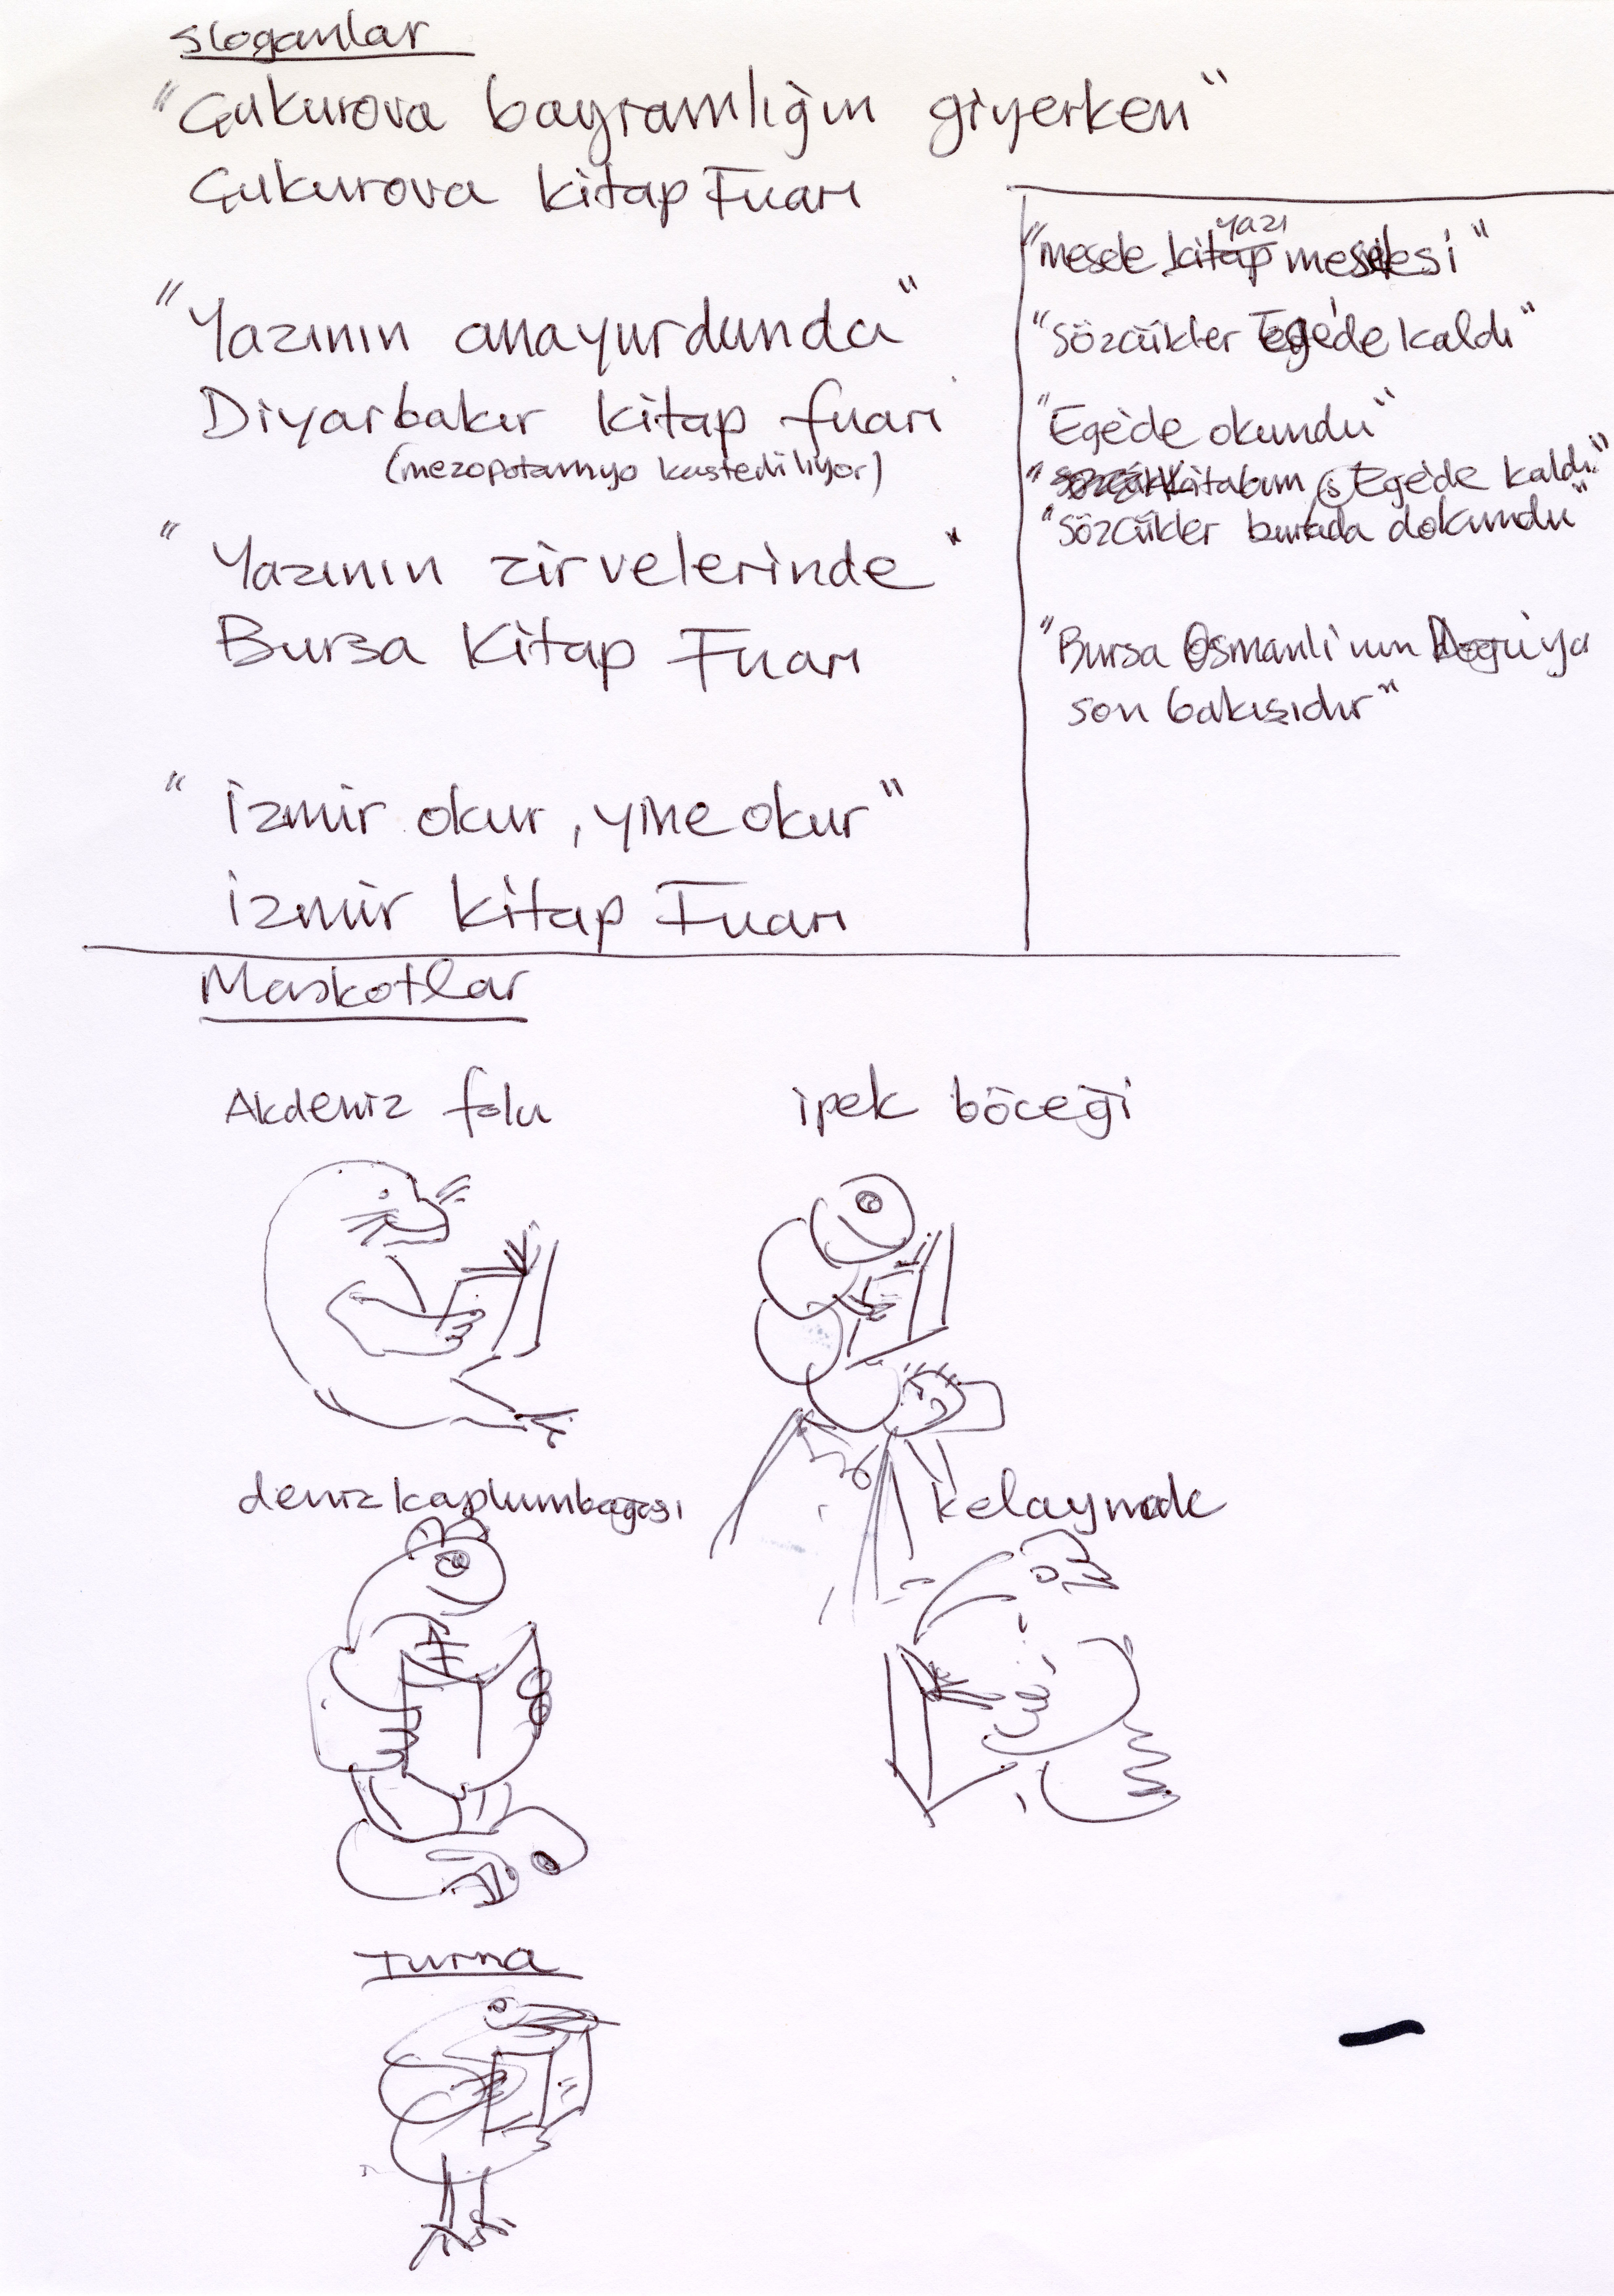 sloganlar
"Çukurova bayramlığın giyerken"
Çukurova kitap Fuarı
"Yazının anayurdunda"
Diyarbakır kitap fuarı
(mezopotamya kastediliyor)
"Yazının zirvelerinde"
Bursa Kitap Fuarı
"İzmir okur, yine okur"
İzmir kitap Fuarı
yazı
"mesele kitap meselesi"
"Sözcükler Ege'de kaldı"
"Ege'de okundu"
"kitabım Ege'de kaldı."
"Sözcükler burada dokundu"
"Bursa Osmanlı'nın Doğu'ya
son bakışıdır"
Maskotlar
Akdeniz foku
ipek böceği
deniz kaplumbağası
kelaynak
Turna